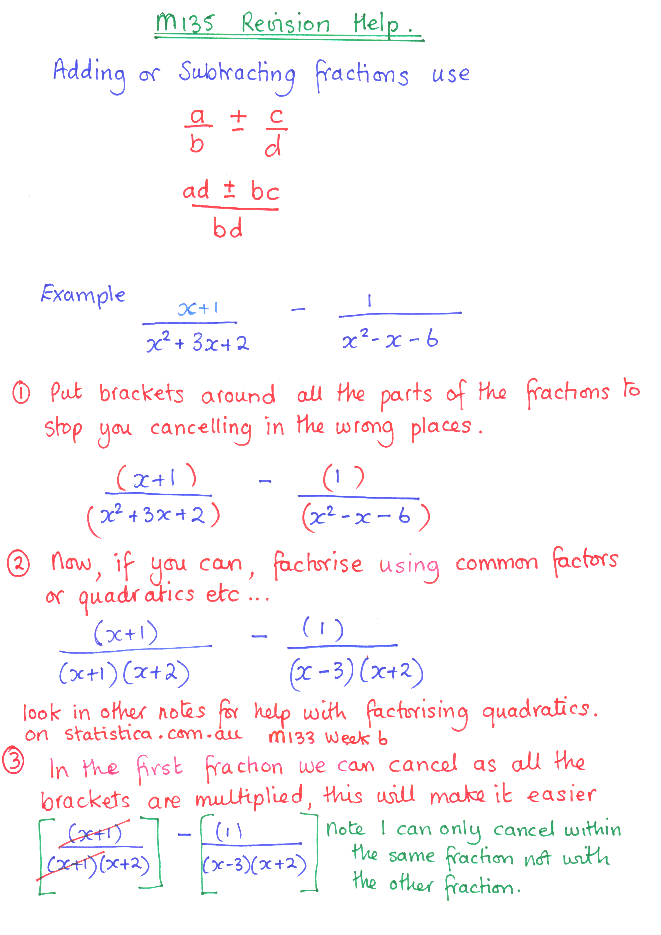 M135 Revision Help.
Adding or Subtracting fractions use
a/b ± c/d
ad ± bc
bd
Example x+1 / x²+3x+2 - 1 / x²-x-6
① Put brackets around all the parts of the fractions to
stop you cancelling in the wrong places.
(x+1) / (x²+3x+2) - (1) / (x²-x-6)
② Now, if you can, factorise using common factors
or quadratics etc ...
(x+1) / (x+1)(x+2) - (1) / (x-3)(x+2)
look in other notes for help with factorising quadratics.
on statistica.com.au M133 Week 6
③ In the first fraction we can cancel as all the
brackets are multiplied, this will make it easier
[(x+1) / (x+1)(x+2)] - [(1) / (x-3)(x+2)]
Note I can only cancel within
the same fraction not with
the other fraction.